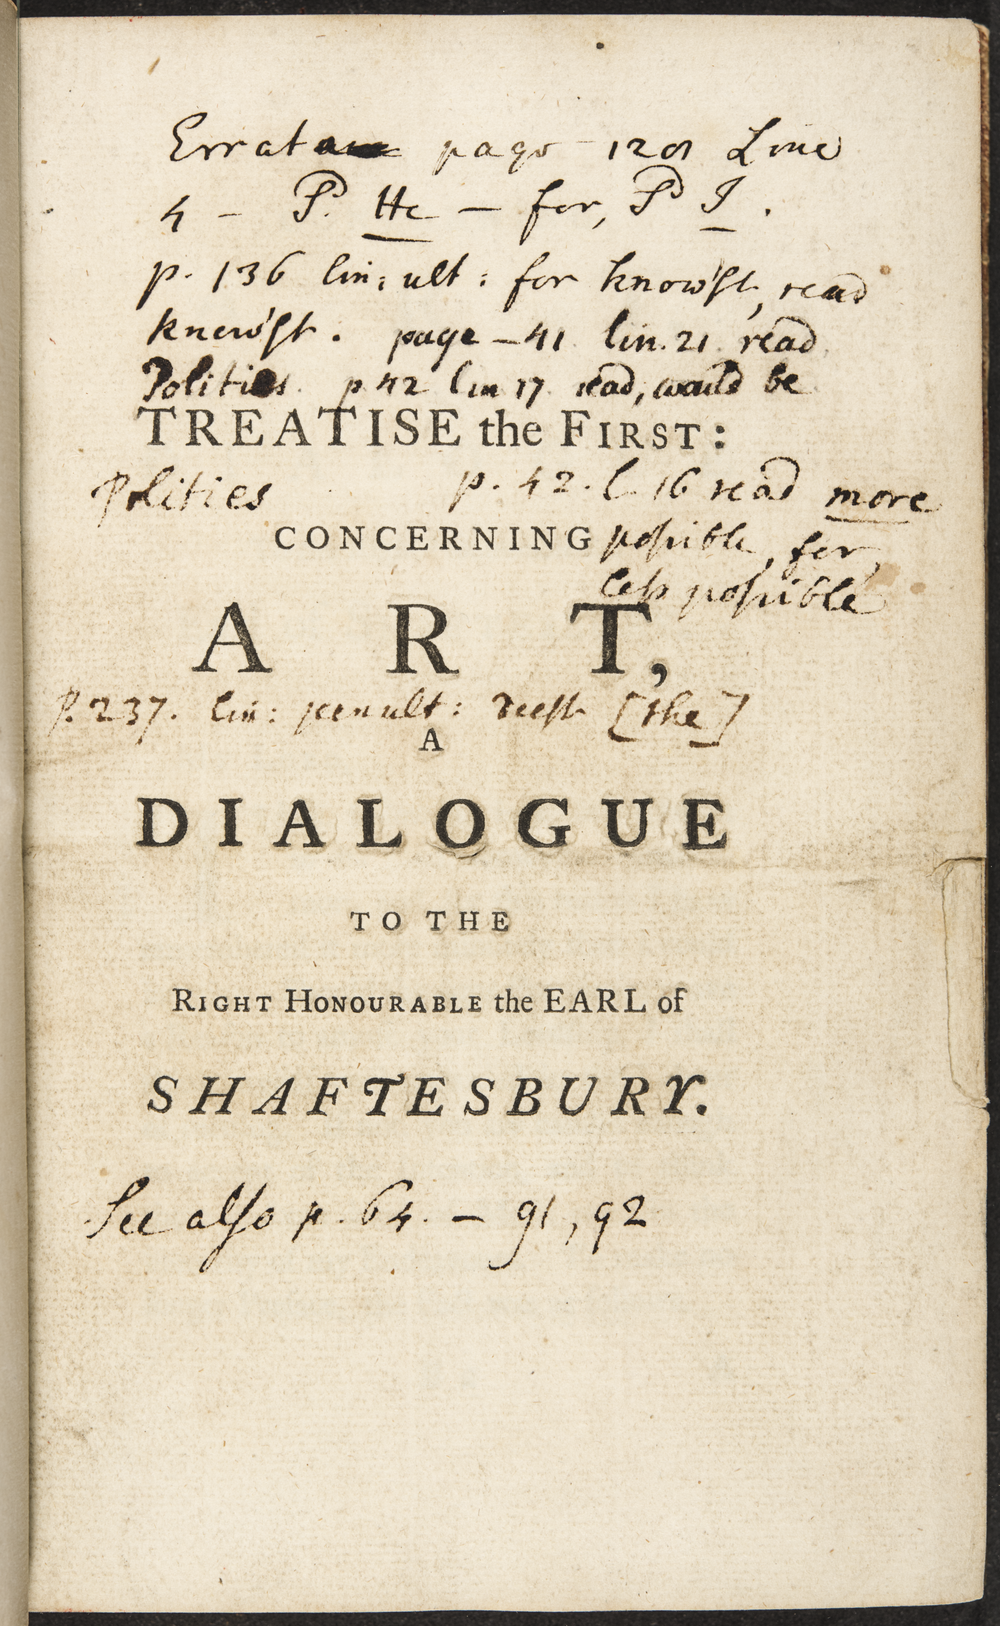 Errata page 120 Line
4 – P. He – for, P I.
p. 136 lin: ult: for know'st, read
knew'st. page – 41 lin. 21 read
Polities. p. 42 lin 17 read, would be
TREATISE the FIRST:
Polities p. 42. l. 16 read more
CONCERNING possible, for,
less possible
A R T,
P. 237. lin: penult: deest [the]
A
DIALOGUE
TO THE
RIGHT HONOURABLE the EARL of
SHAFTESBURY.
See also p. 64. – 91, 92